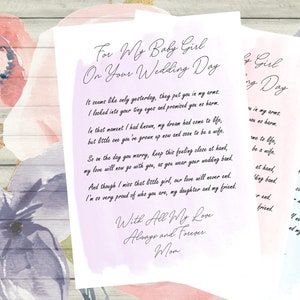 For My Baby Girl
On Your Wedding Day
It seems like only yesterday, they put you in my arms.
I looked into your tiny eyes and promised you no harm.
In that moment I had known, my dream had come to life,
but little one you've grown up now and soon to be a wife.
So on the day you marry, keep this feeling close at hand,
my love will now go with you, as you wear your wedding band.
And though I miss that little girl, our love will never end.
I'm so very proud of who you are, my daughter and my friend.
With All My Love
Always and Forever
Mom
Baby Girl
Wedding Day
put you in my arms.
promised you no harm.
had come to life,
soon to be a wife.
close at hand,
wedding band.
never end.
my friend.